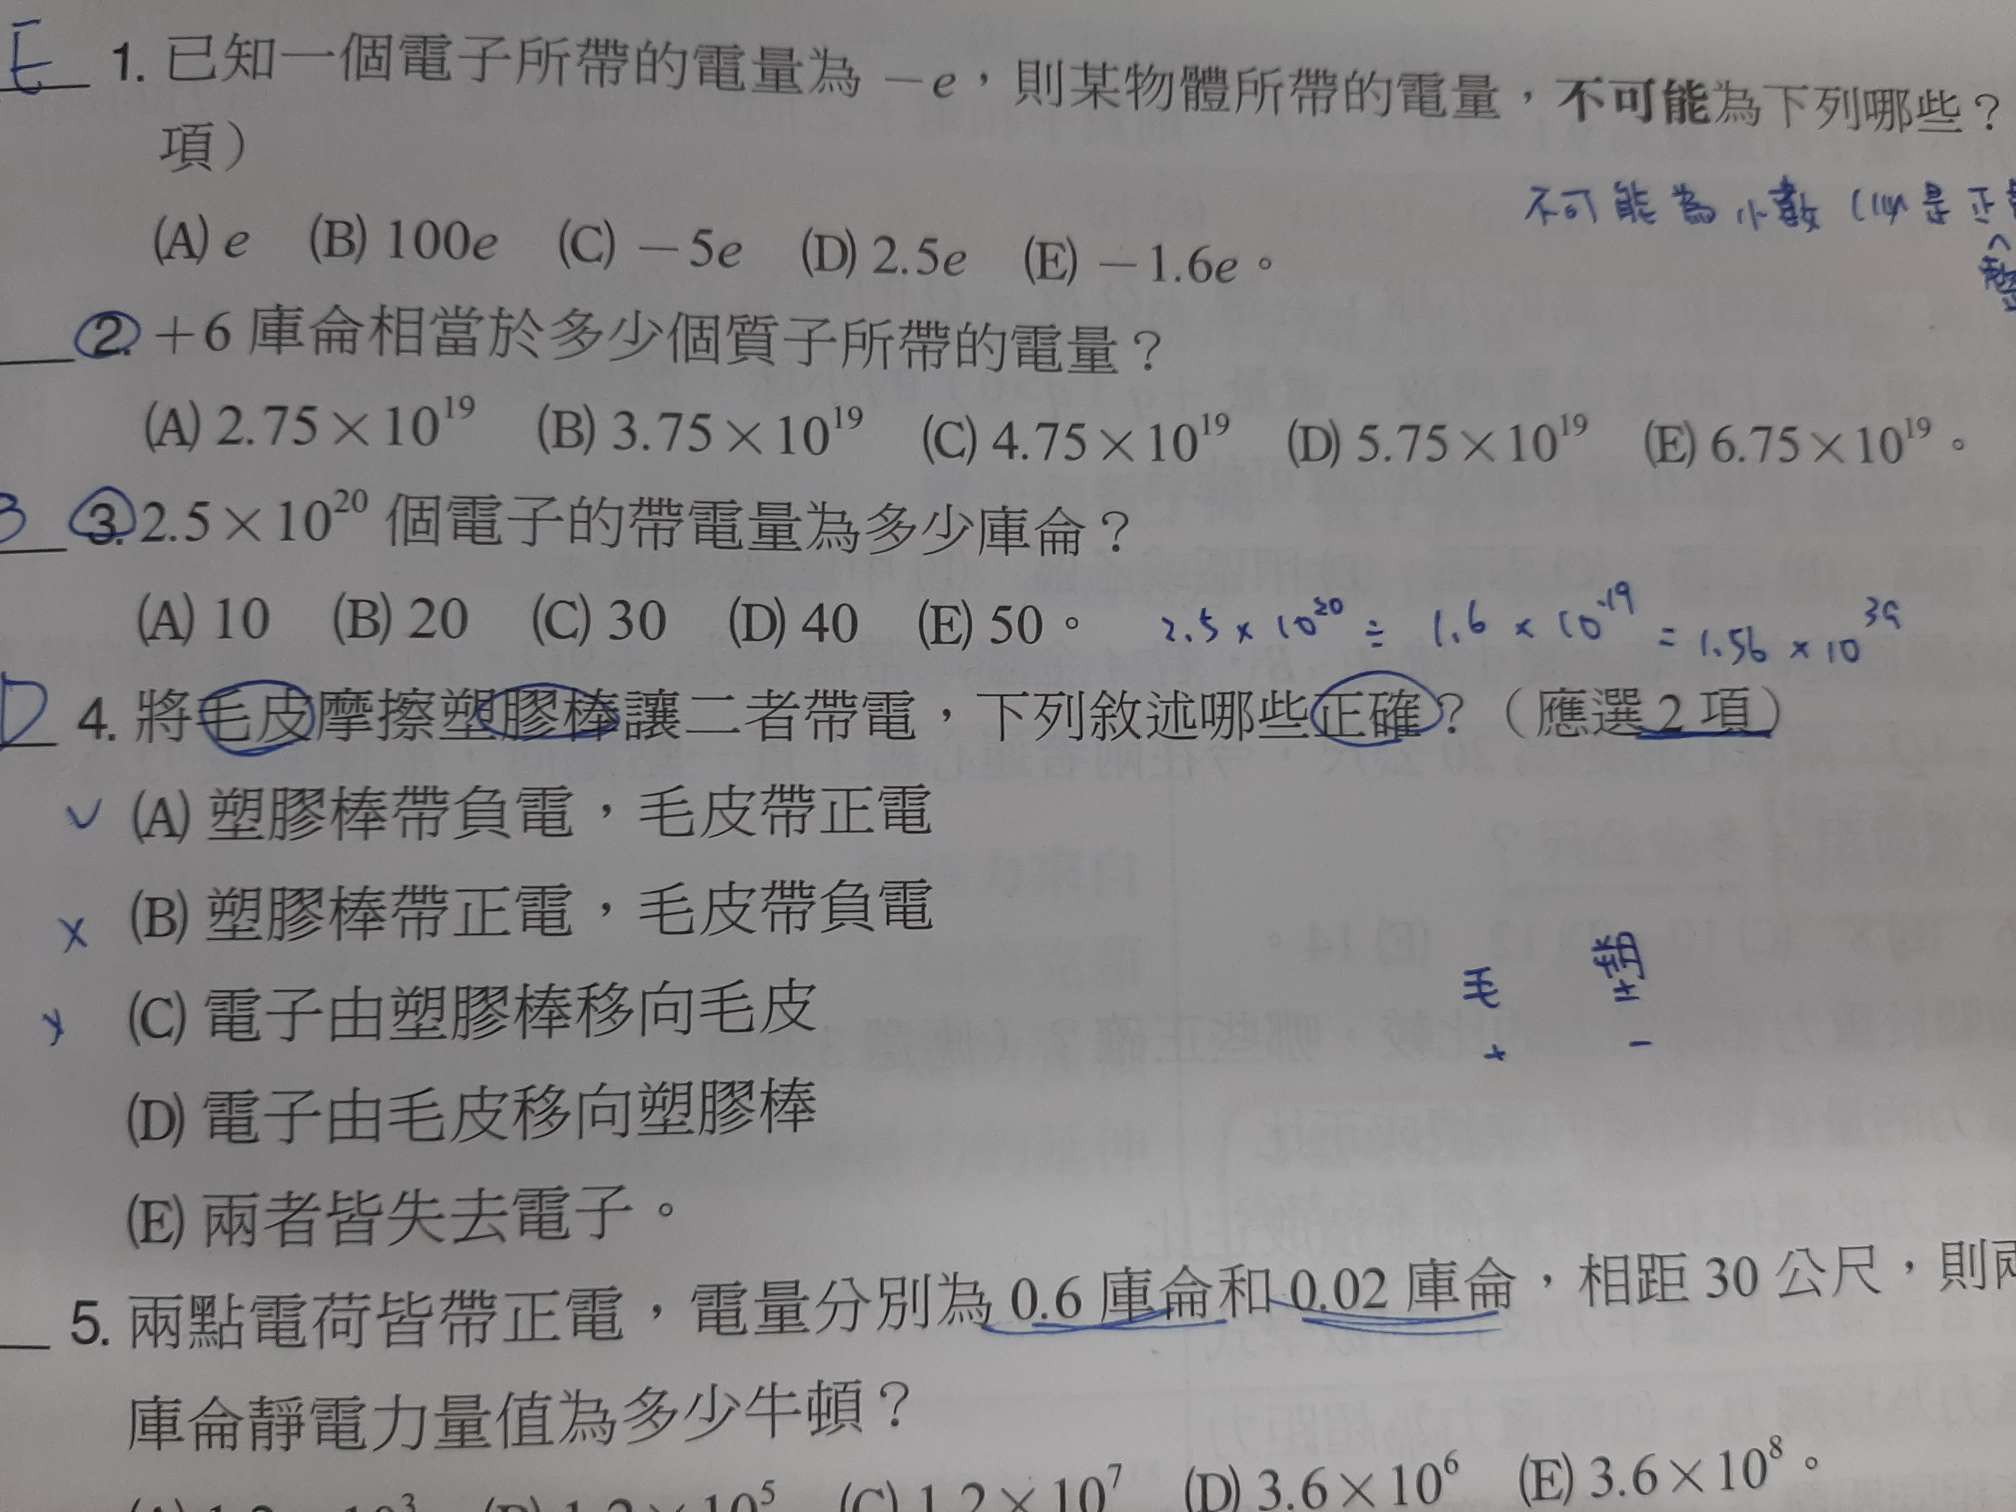 E 1. 已知一個電子所帶的電量為 －e，則某物體所帶的電量，不可能為下列哪些？
項）
不可能為小數 (
(A) e (B) 100e (C) －5e (D) 2.5e (E) －1.6e。
2. ＋6 庫侖相當於多少個質子所帶的電量？
(A) 2.75×10¹⁹ (B) 3.75×10¹⁹ (C) 4.75×10¹⁹ (D) 5.75×10¹⁹ (E) 6.75×10¹⁹。
3. 2.5×10²⁰ 個電子的帶電量為多少庫侖？
(A) 10 (B) 20 (C) 30 (D) 40 (E) 50。 2.5×10²⁰ ÷ 1.6×10⁻¹⁹ = 1.56×10³⁹
D 4. 將毛皮摩擦塑膠棒讓二者帶電，下列敘述哪些正確？（應選 2 項）
✓ (A) 塑膠棒帶負電，毛皮帶正電
× (B) 塑膠棒帶正電，毛皮帶負電
毛 塑
× (C) 電子由塑膠棒移向毛皮
+ −
(D) 電子由毛皮移向塑膠棒
(E) 兩者皆失去電子。
5. 兩點電荷皆帶正電，電量分別為 0.6 庫侖和 0.02 庫侖，相距 30 公尺，則
庫侖靜電力量值為多少牛頓？
(C) 1.2×10⁷ (D) 3.6×10⁶ (E) 3.6×10⁸。